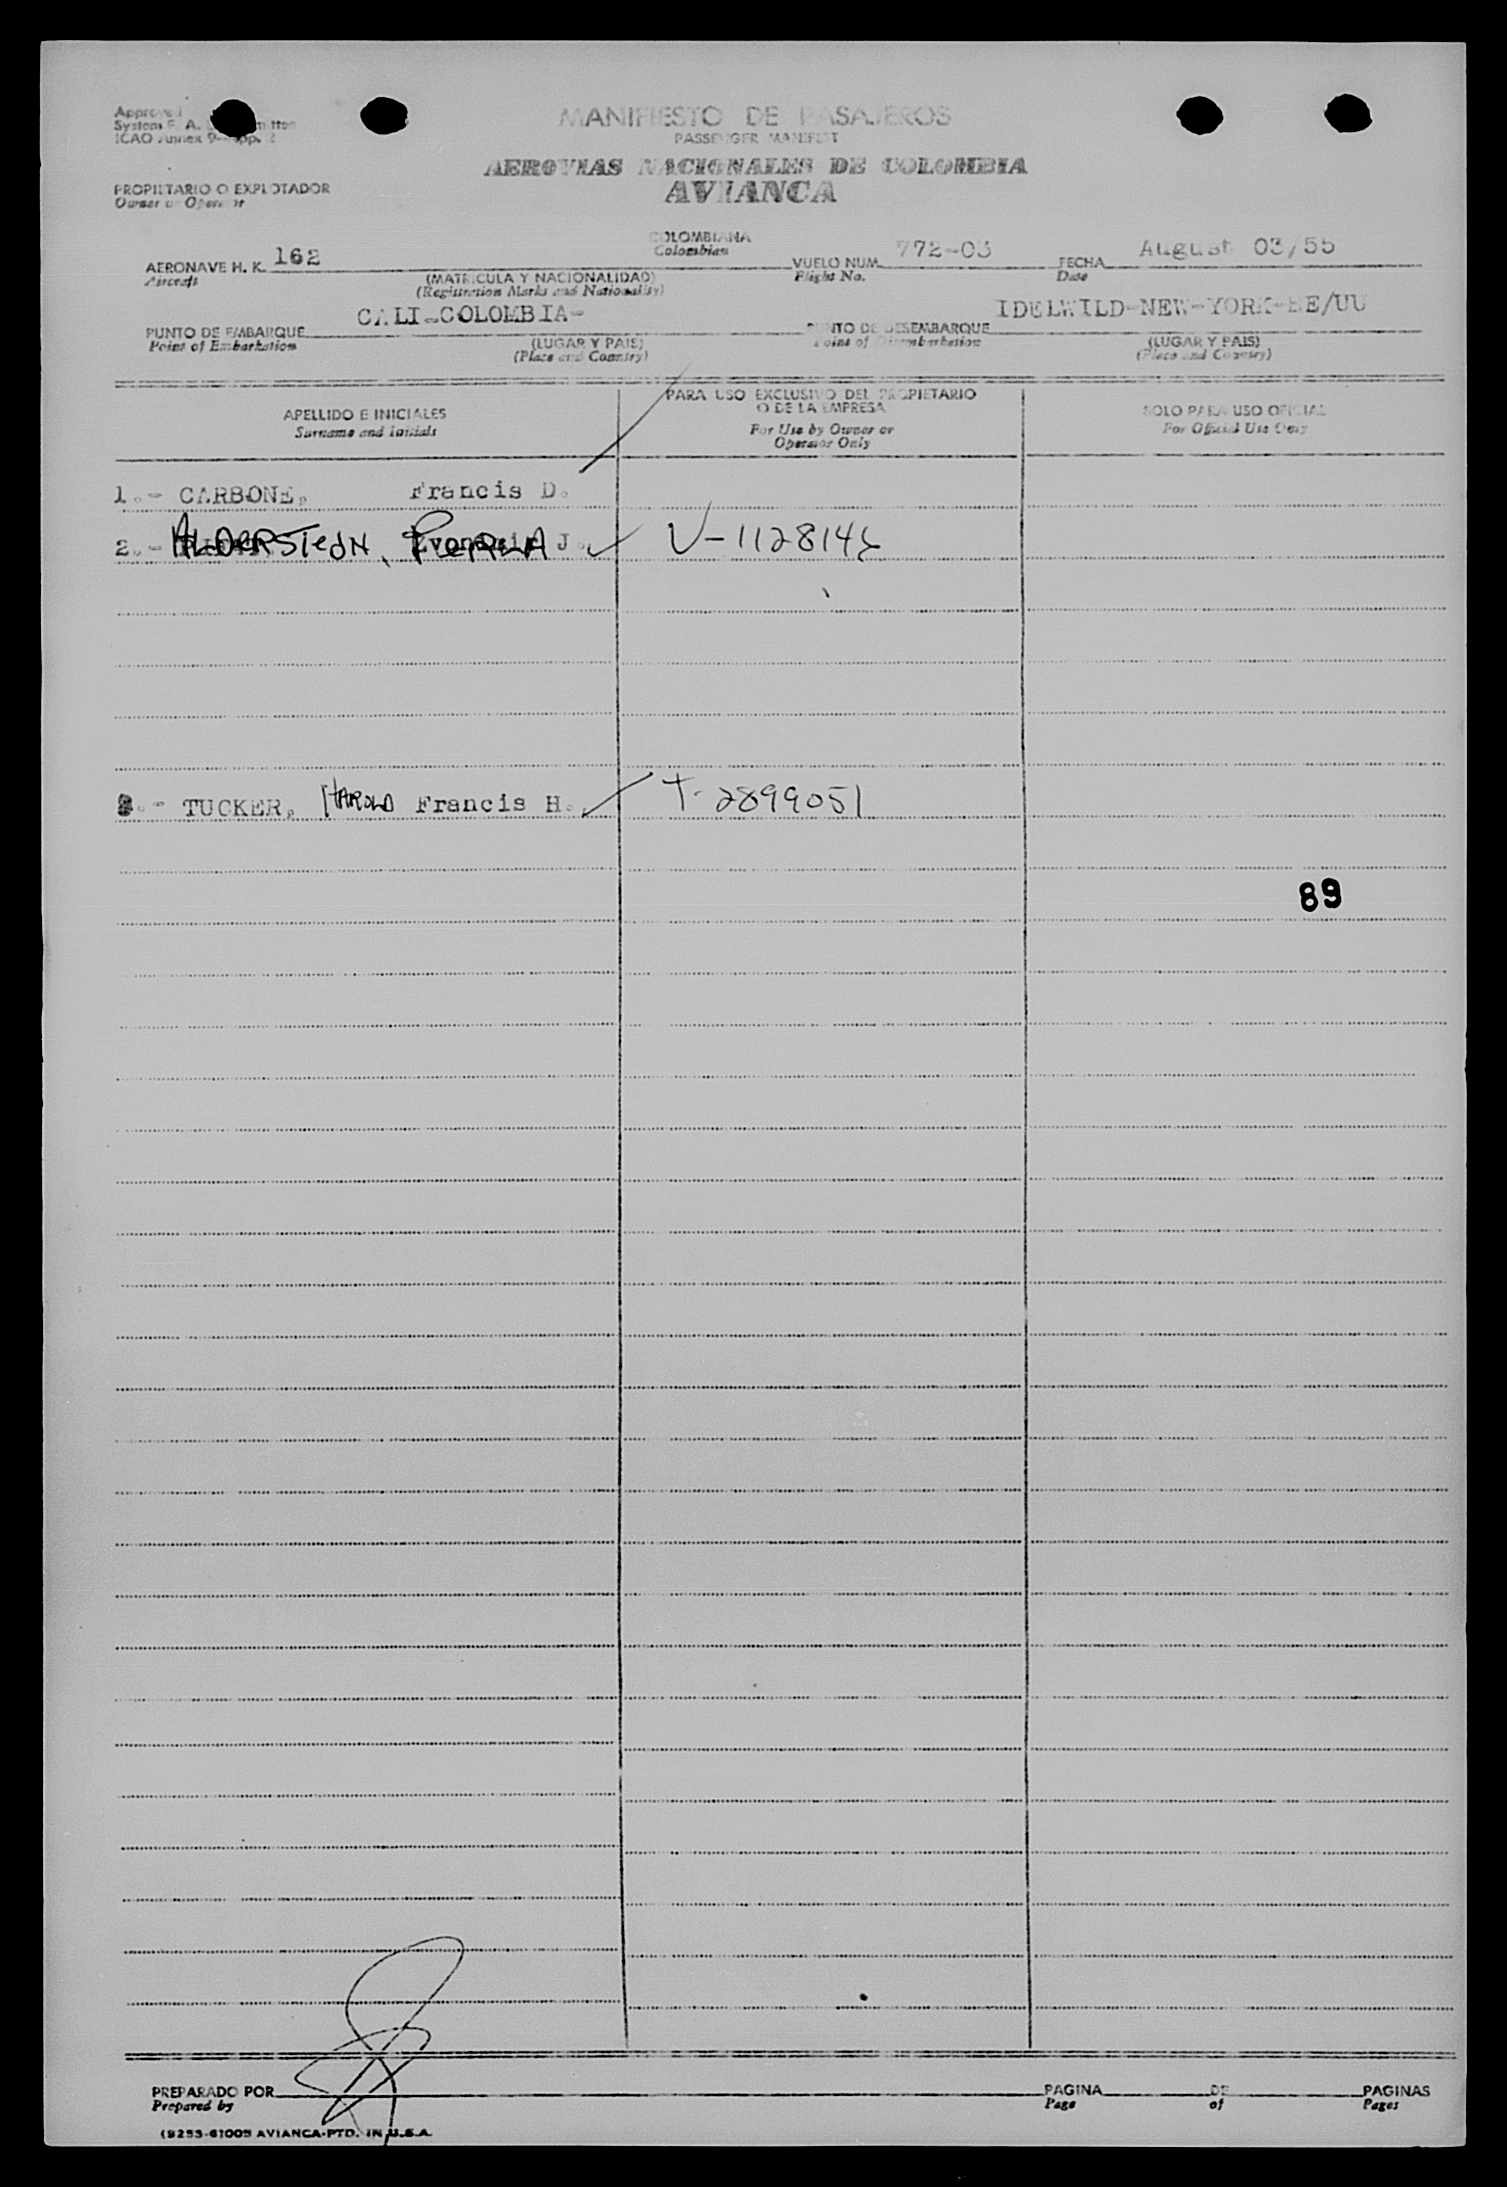 MANIFIESTO DE PASAJEROS
PASSENGER MANIFEST
AEROVIAS NACIONALES DE COLOMBIA
AVIANCA
Approved
System F. A. L.
ICAO Annex 9- App. 2
PROPIETARIO O EXPLOTADOR
Owner or Operator
COLOMBIANA
Colombian
AERONAVE H. K. 162 VUELO NUM. 772-03 FECHA August 03/55
Aircraft (MATRICULA Y NACIONALIDAD) Flight No. Date
(Registration Marks and Nationality)
CALI-COLOMBIA- IDELWILD-NEW-YORK-EE/UU
PUNTO DE EMBARQUE PUNTO DE DESEMBARQUE
Point of Embarkation (LUGAR Y PAIS) Point of Disembarkation (LUGAR Y PAIS)
(Place and Country) (Place and Country)
APELLIDO E INICIALES
Surname and Initials
PARA USO EXCLUSIVO DEL PROPIETARIO
O DE LA EMPRESA
For Use by Owner or
Operator Only
SOLO PARA USO OFICIAL
For Official Use Only
1.- CARBONE, Francis D.
2.- J. V-1128146
3.- TUCKER, HAROLD Francis H. T-2899051
89
PREPARADO POR PAGINA DE PAGINAS
Prepared by Page of Pages
(9253-61005 AVIANCA-PTD. IN U.S.A.